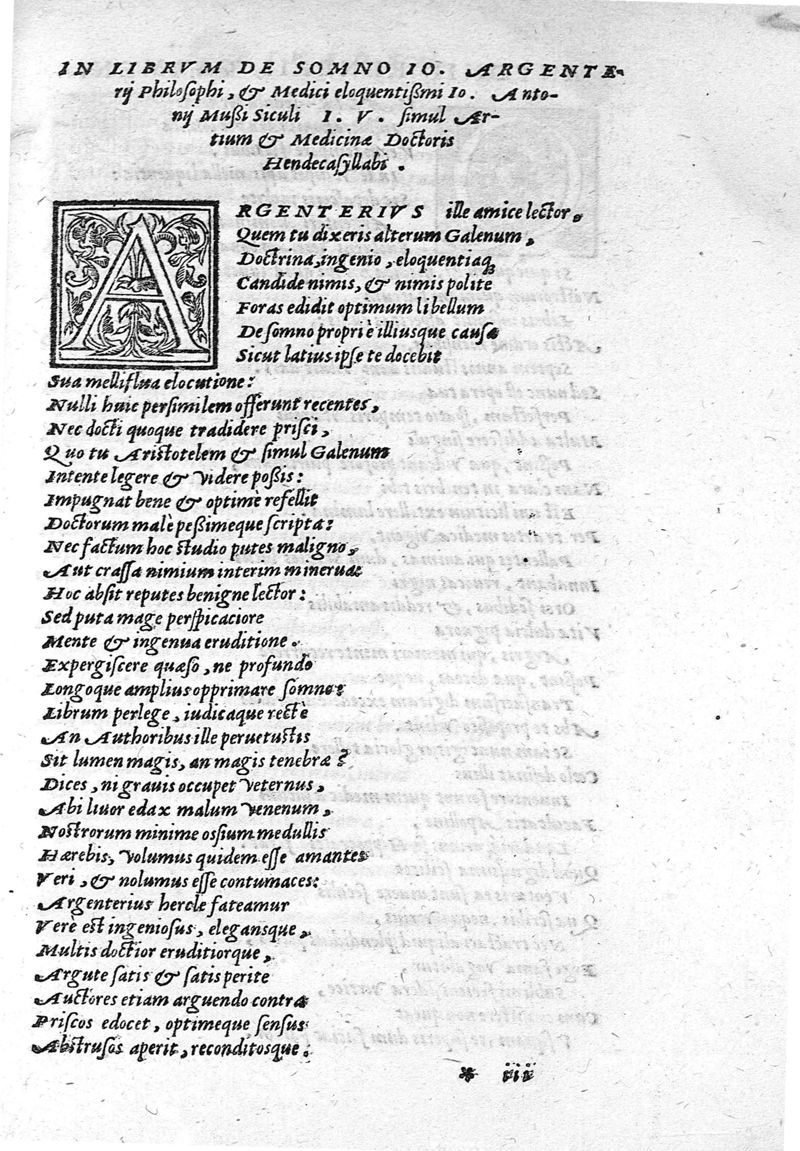 IN LIBRVM DE SOMNO IO. ARGENTE-
rij Philoſophi, & Medici eloquentißimi Io. Anto-
nij Mußi Siculi I. V. ſimul Ar-
tium & Medicinæ Doctoris
Hendecaſyllabi.
ARGENTERIVS ille amice lector,
Quem tu dixeris alterum Galenum,
Doctrina, ingenio, eloquentiaq;
Candide nimis, & nimis polite
Foras edidit optimum libellum
De ſomno propriè illiusque cauſa
Sicut latius ipſe te docebit
Sua melliflua elocutione:
Nulli huic perſimilem offerunt recentes,
Nec docti quoque tradidere priſci,
Quo tu Ariſtotelem & ſimul Galenum
Intente legere & videre poßis:
Impugnat bene & optimè refellit
Doctorum malè peßimeque ſcripta:
Nec factum hoc ſtudio putes maligno,
Aut craſſa nimium interim minerua:
Hoc abſit reputes benigne lector:
Sed puta mage perſpicaciore
Mente & ingenua eruditione.
Expergiſcere quæſo, ne profundo
Longoque amplius opprimare ſomno:
Librum perlege, iudicaque rectè
An Authoribus ille peruetuſtis
Sit lumen magis, an magis tenebræ?
Dices, ni grauis occupet veternus,
Abi liuor edax malum venenum,
Noſtrorum minime oſsium medullis
Hærebis, volumus quidem eſſe amantes
Veri, & nolumus eſſe contumaces:
Argenterius hercle fateamur
Verè eſt ingenioſus, elegansque,
Multis doctior eruditiorque,
Argute ſatis & ſatis perite
Auctores etiam arguendo contra
Priſcos edocet, optimeque ſenſus
Abſtruſos aperit, reconditosque.
* iij